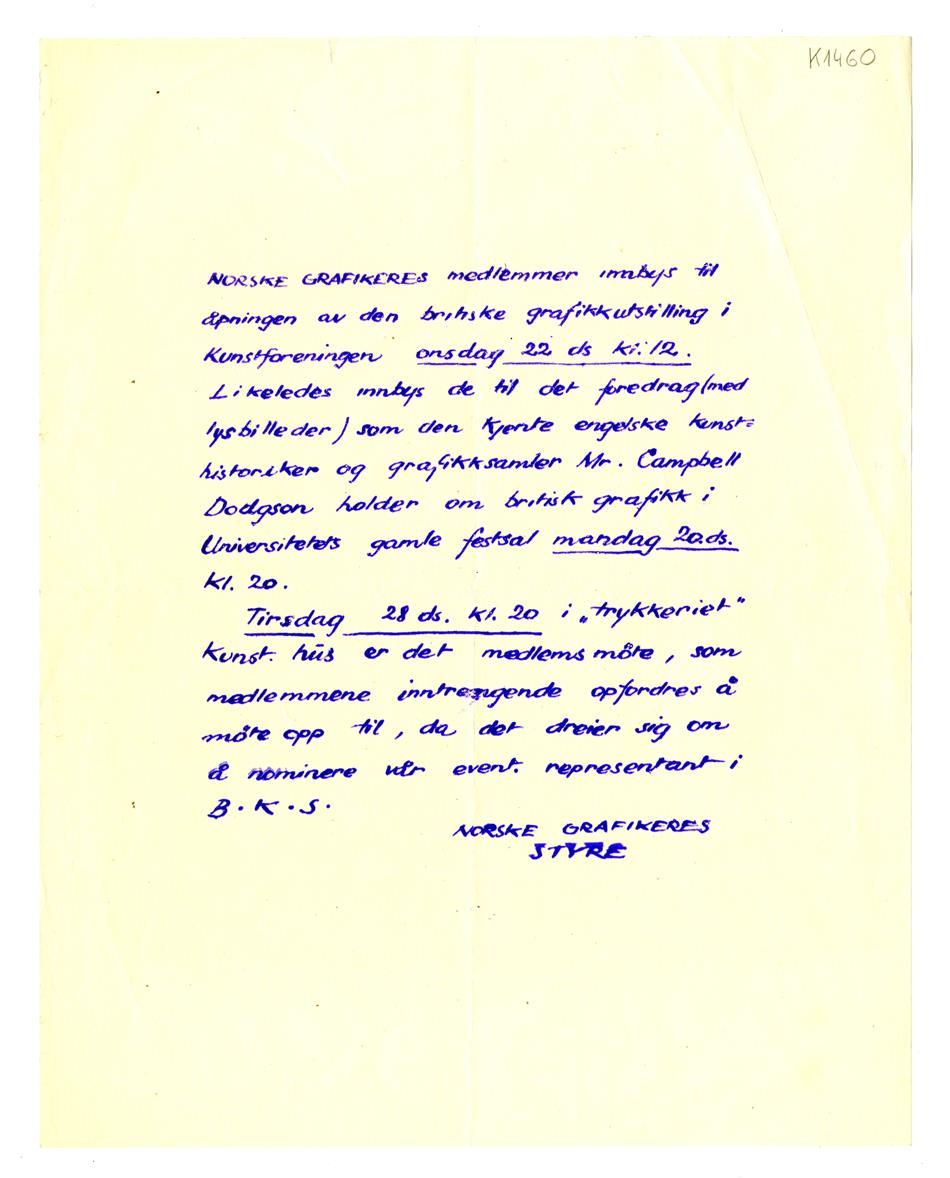 K1460
NORSKE GRAFIKERES medlemmer innbys til
åpningen av den britiske grafikkutstilling i
Kunstforeningen onsdag 22 ds kl. 12.
Likeledes innbys de til det foredrag (med
lysbilleder) som den kjente engelske kunst=
historiker og grafikksamler Mr. Campbell
Dodgson holder om britisk grafikk i
Universitetets gamle festsal mandag 20.ds.
kl. 20.
Tirsdag 28 ds. kl. 20 i „trykkeriet"
Kunst. hus er det medlemsmöte, som
medlemmene inntrengende opfordres å
möte opp til, da det dreier sig om
å nominere vår event. representant i
B.K.S.
NORSKE GRAFIKERES
STYRE